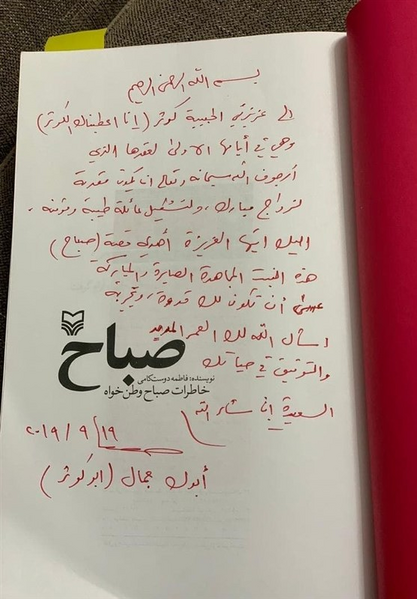 بسم الله الرحمن الرحيم
الى عزيزتي الحبيبة كوثر (انا اعطيناك الكوثر)
وهي في أيامها الاولى لعقدها الذي
أرجو الله سبحانه وتعالى ان يكون مقدمة
لزواج مبارك، ولتشكيل عائلة طيبة ومؤمنة.
اليك ايتها العزيزة أهدي قصة (صباح)
هذه البنت المجاهدة الصابرة والمباركة
عسى أن تكون لك قدوة، وتجربة
اسأل الله لك العمر المديد
صباح
والتوفيق في حياتك
نویسنده: فاطمه دوست‌کامی
خاطرات صباح وطن‌خواه
السعيدة إن شاء الله
٢٠١٩ / ٩ / ١٩
أبوك جمال (ابو كوثر)